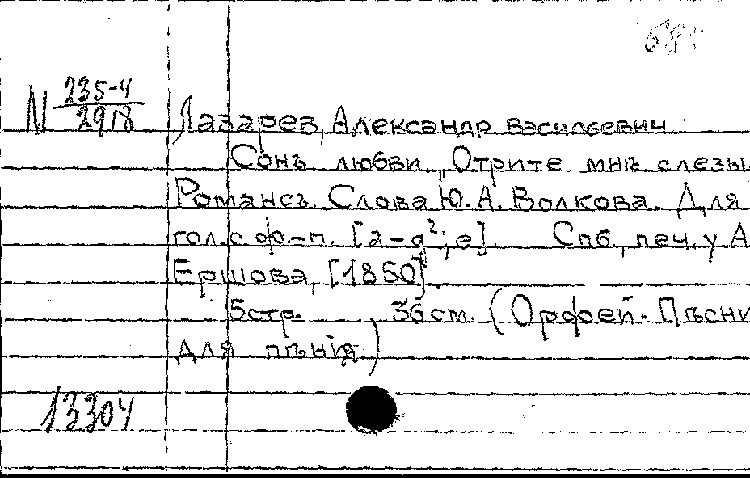 N 235-4
2918
Лазарев, Александр Васильевич
Сонъ любви, Отрите мнѣ слезы
Романсъ. Слова Ю. А. Волкова. Для
гол. с ф-п. [a-g²; e]. Спб, печ. у А
Ершова, [1850].
5 стр. 36 см. (Орфей. Пѣсни
для пѣнія)
13304